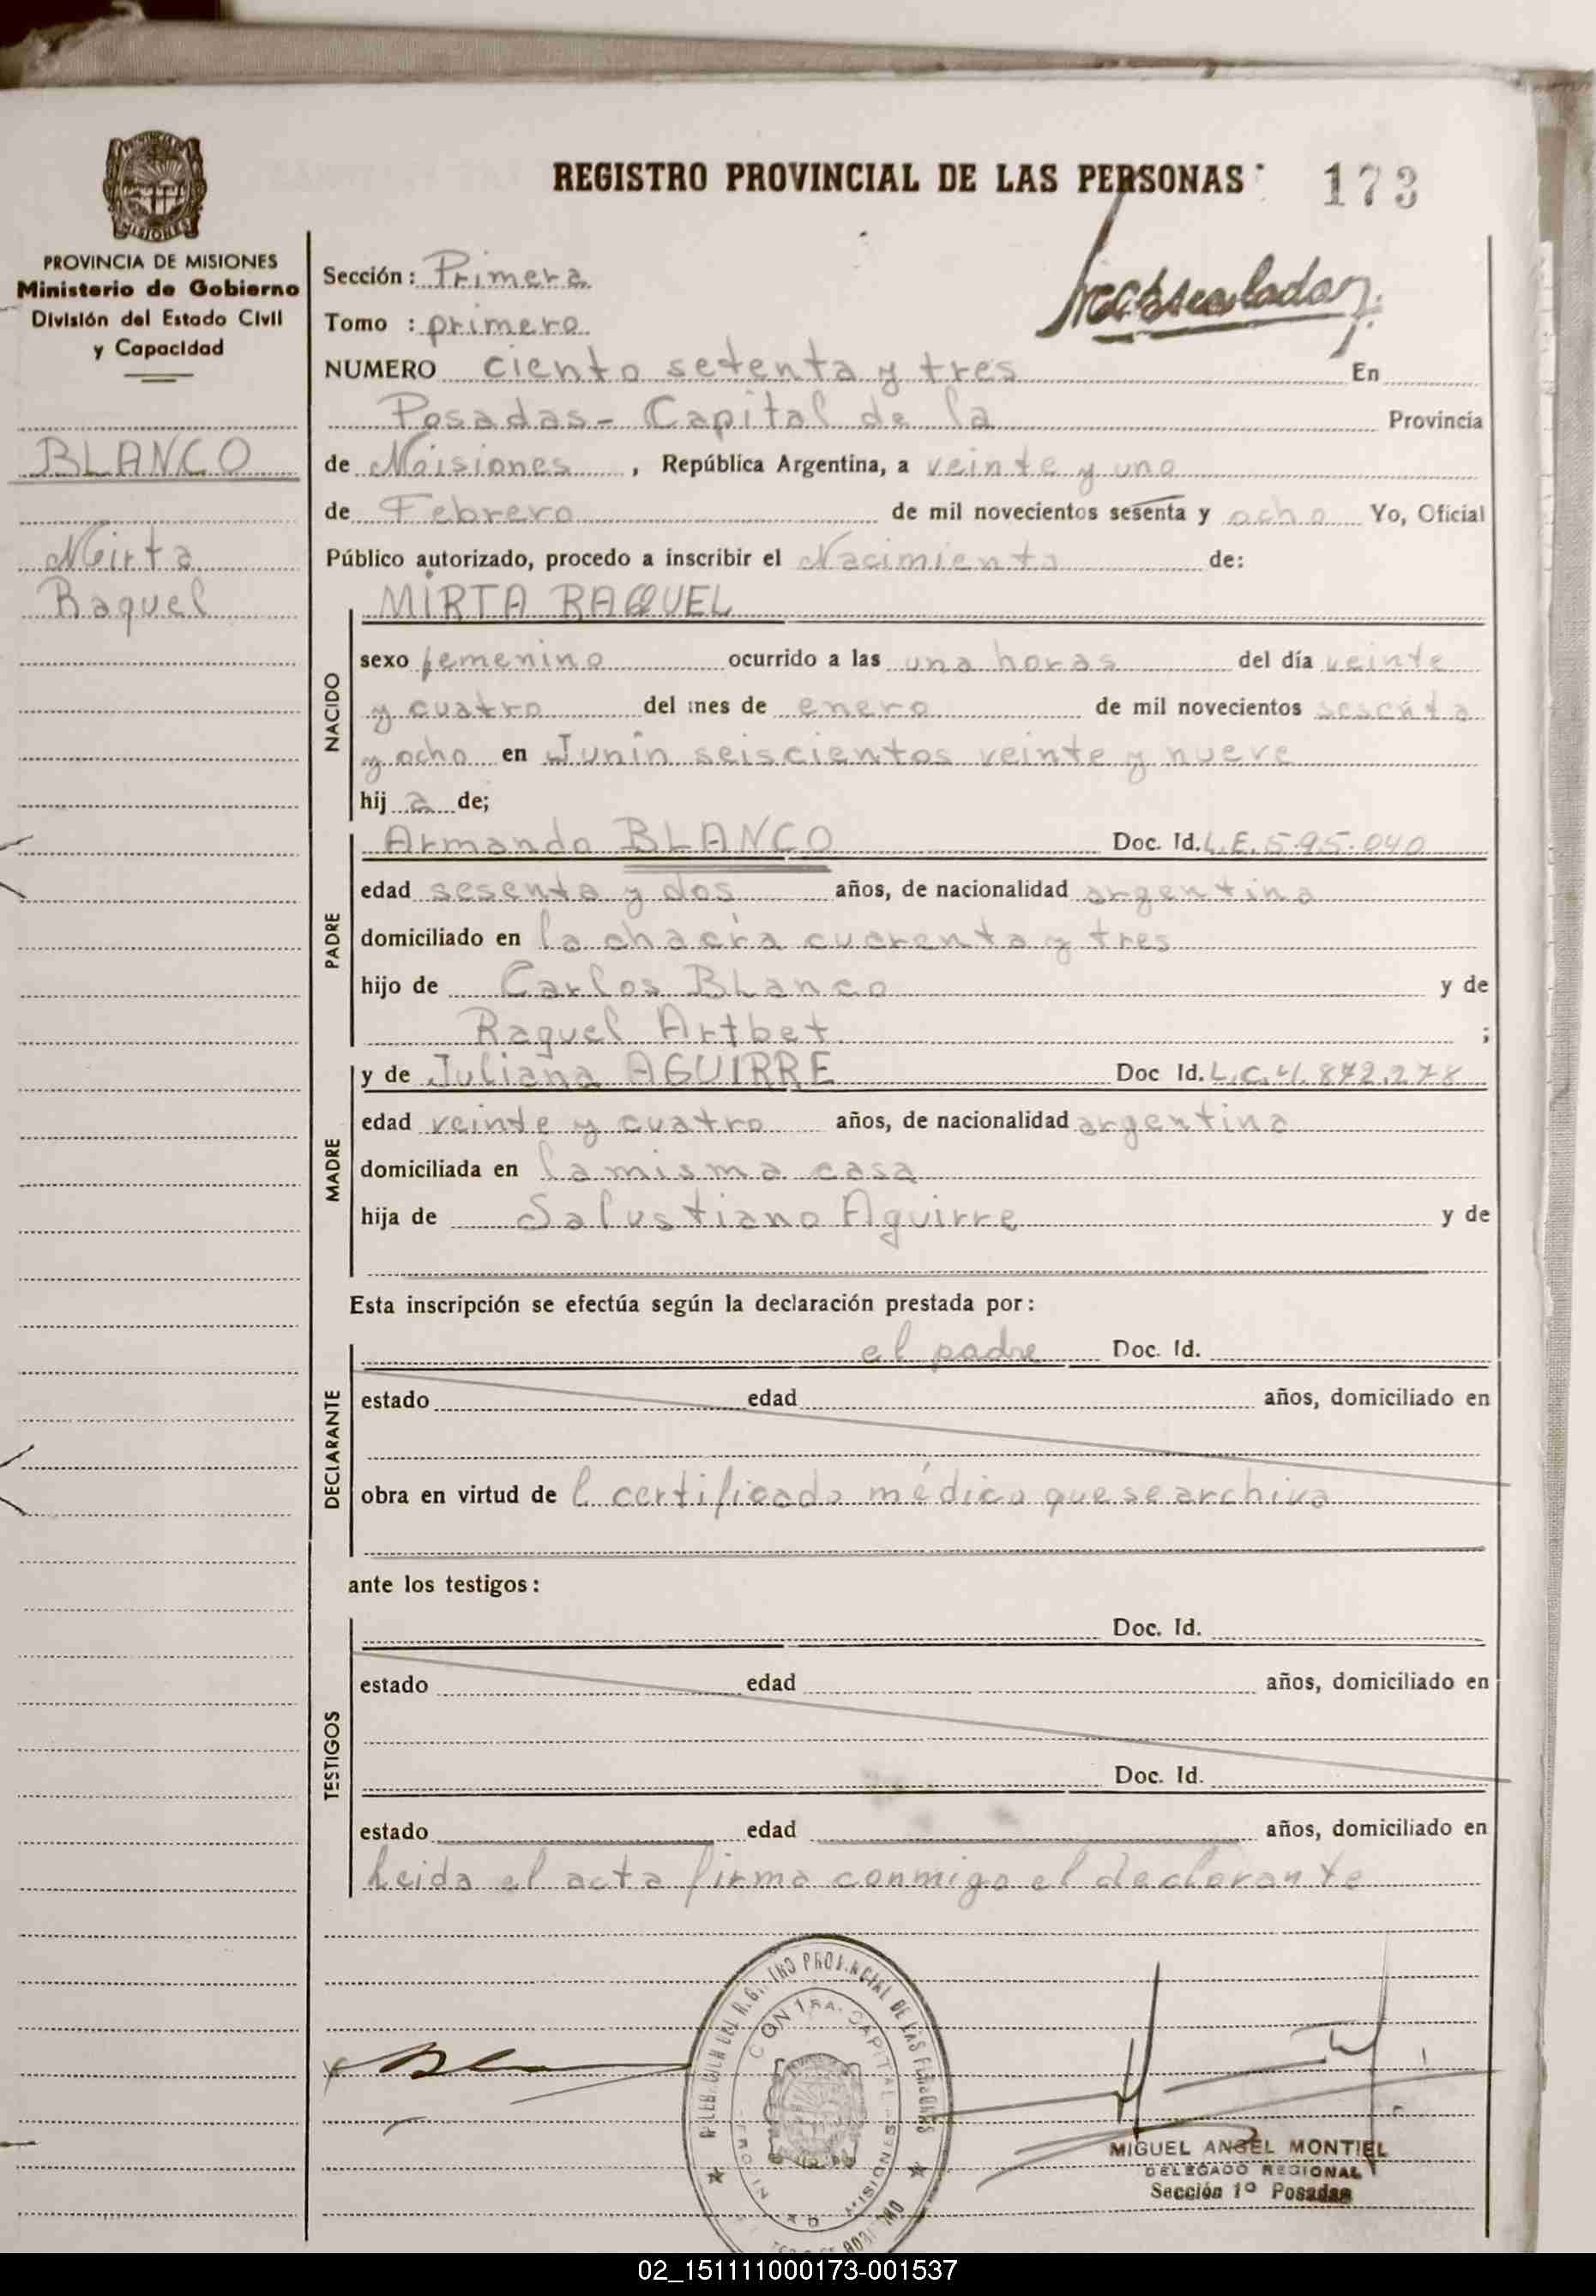 REGISTRO PROVINCIAL DE LAS PERSONAS 173
MISIONES
PROVINCIA DE MISIONES
Ministerio de Gobierno
División del Estado Civil
y Capacidad
BLANCO
Mirta
Raquel
Sección: Primera
Tomo : primero
NUMERO ciento setenta y tres En
Posadas - Capital de la Provincia
de Misiones, República Argentina, a veinte y uno
de Febrero de mil novecientos sesenta y ocho Yo, Oficial
Público autorizado, procedo a inscribir el Nacimiento de:
NACIDO
MIRTA RAQUEL
sexo femenino ocurrido a las una horas del día veinte
y cuatro del mes de enero de mil novecientos sesenta
y ocho en Junín seiscientos veinte y nueve
hij a de;
PADRE
Armando BLANCO Doc. Id. L.E. 595.040
edad sesenta y dos años, de nacionalidad argentina
domiciliado en la chacra cuarenta y tres
hijo de Carlos Blanco y de
Raquel Artbet ;
MADRE
y de Juliana AGUIRRE Doc Id. L.C. 4.842.278
edad veinte y cuatro años, de nacionalidad argentina
domiciliada en la misma casa
hija de Salustiano Aguirre y de
Esta inscripción se efectúa según la declaración prestada por:
DECLARANTE
el padre Doc. Id.
estado edad años, domiciliado en
obra en virtud de l certificado médico que se archiva
ante los testigos:
TESTIGOS
Doc. Id.
estado edad años, domiciliado en
Doc. Id.
estado edad años, domiciliado en
Leida el acta firma conmigo el declarante
CAPITAL
MISIONES
MIGUEL ANGEL MONTIEL
DELEGADO REGIONAL
Sección 1º Posadas
02_151111000173-001537